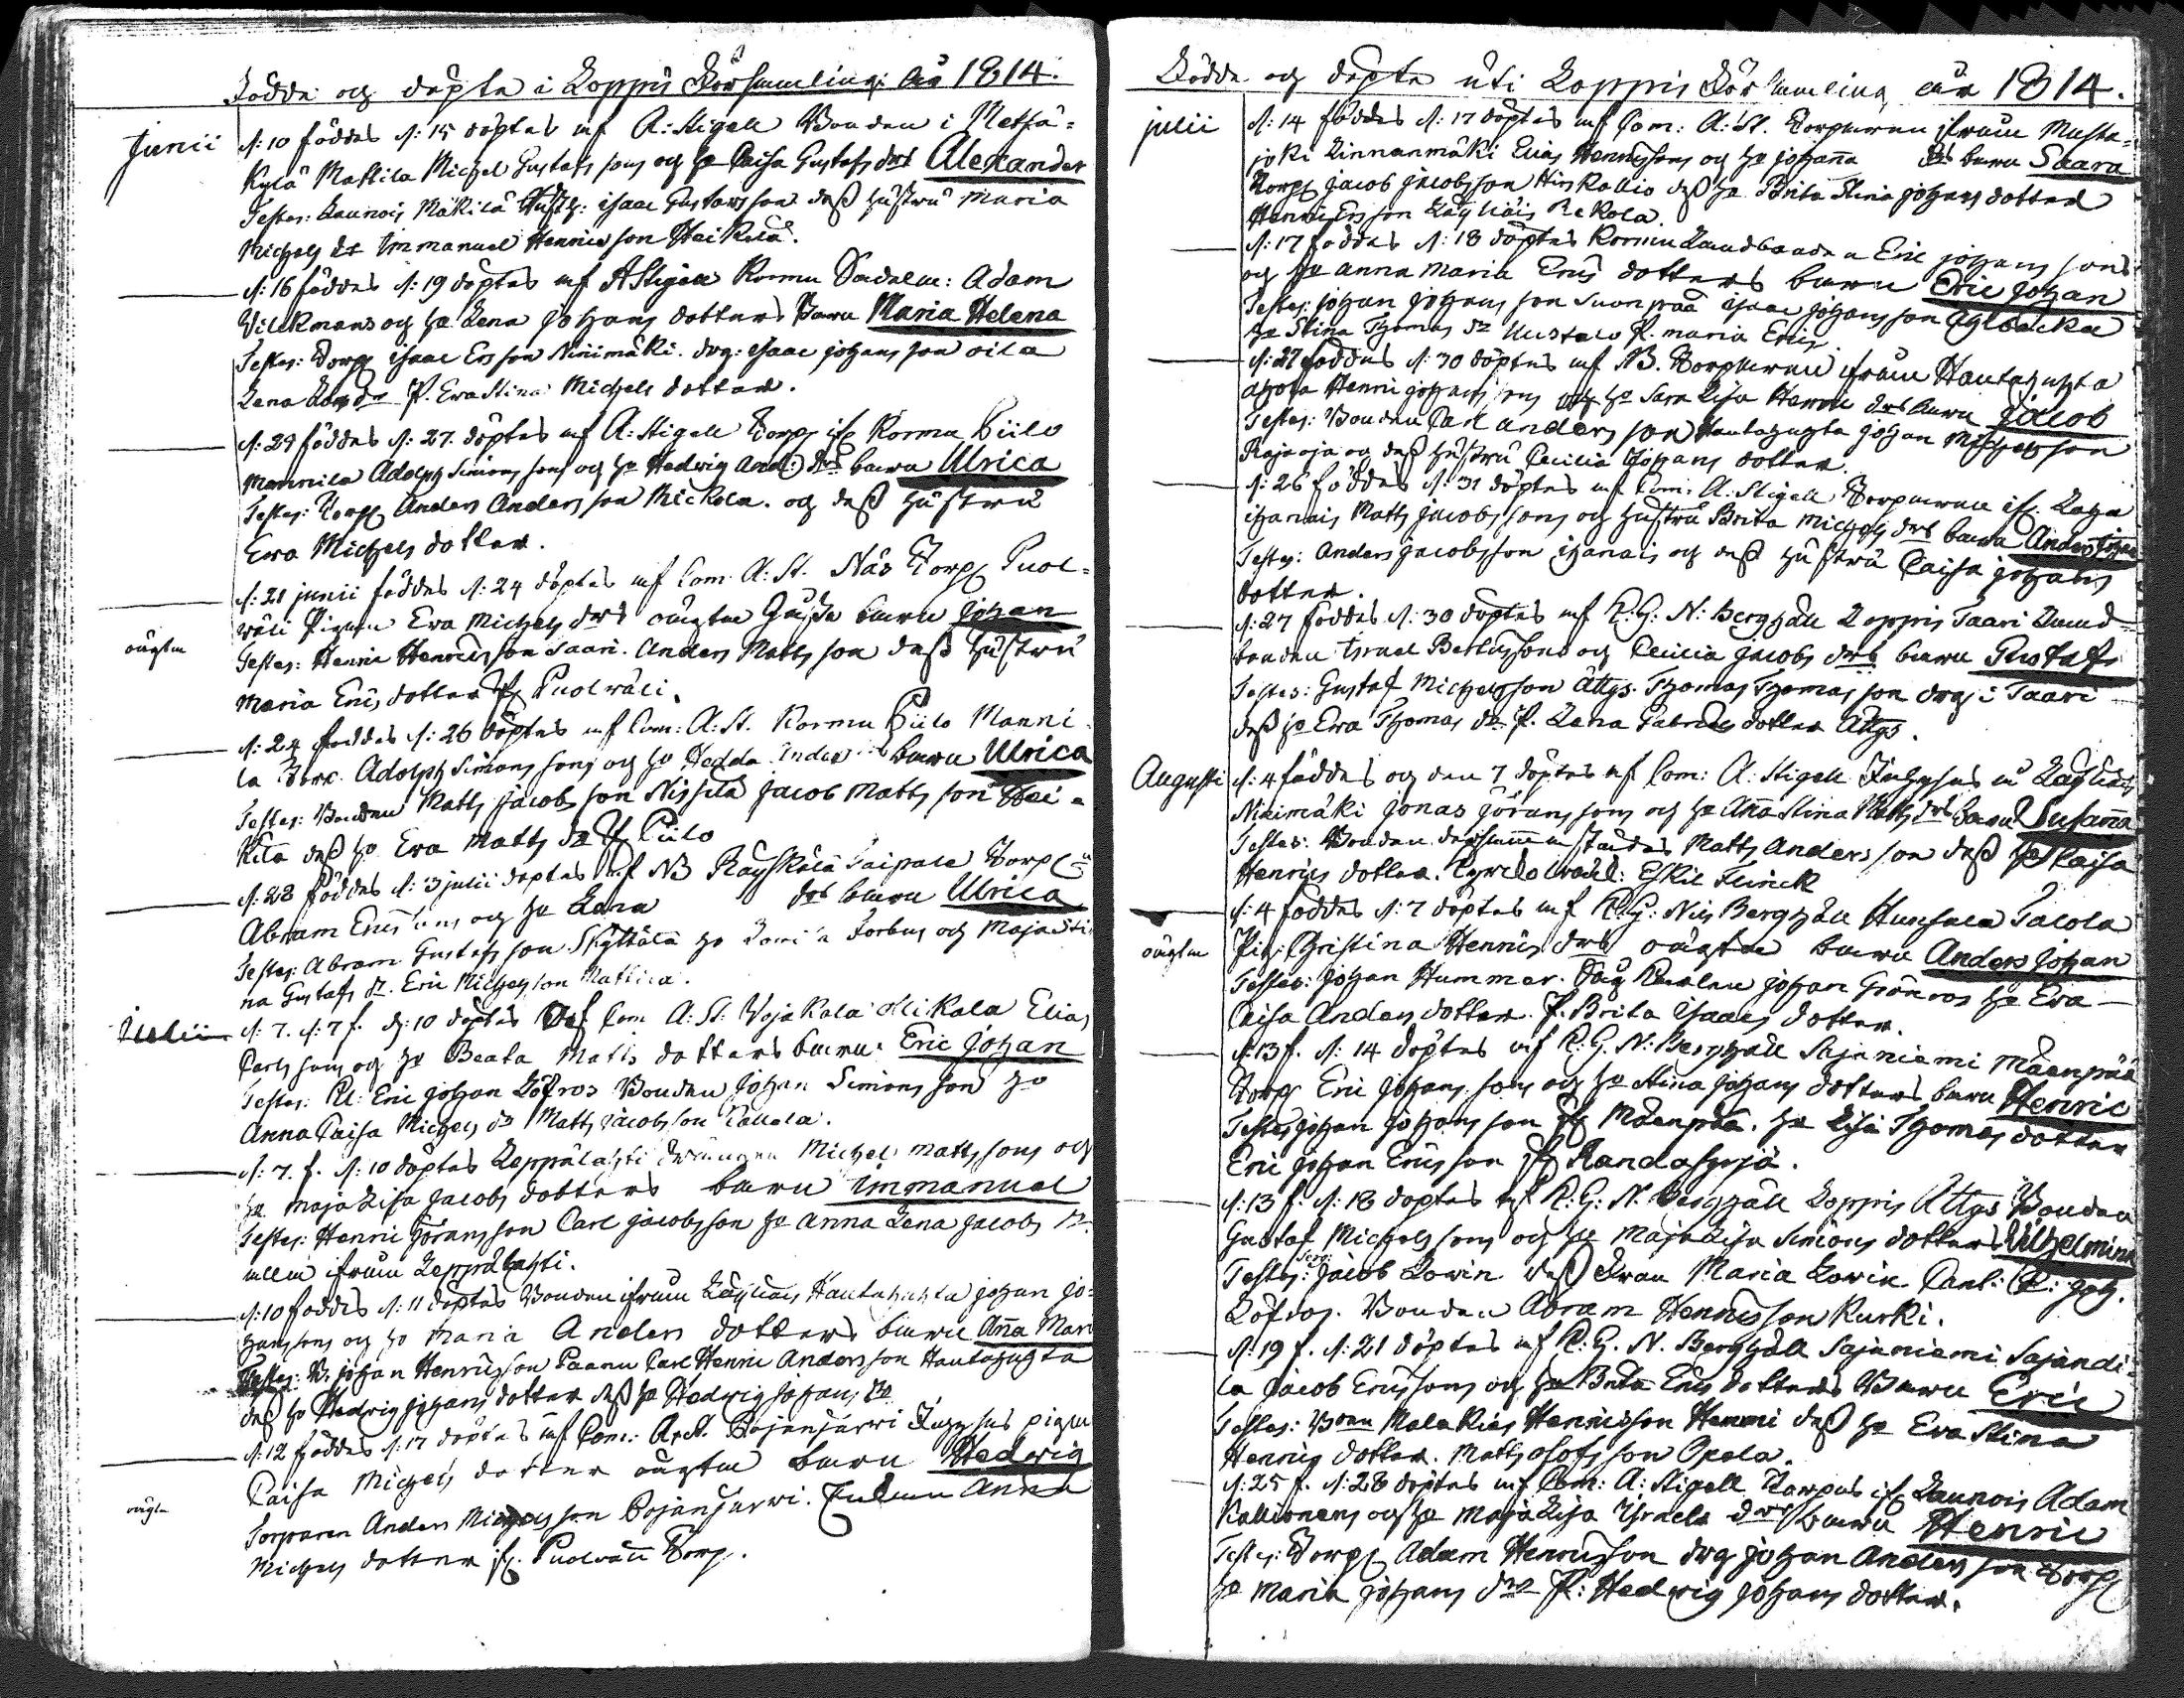 Födde og döpte i Loppis Församling: År 1814.
Junii
d: 10 föddes d: 15 döptes af A: Stigell Bonden i Metsä=
kylä Mattila Michel Gustafssons og h: Caisa Gustafs drs Alexander
Testes: Launois Mäkilä Isaac Gustavsson dess hustru Maria
Michels dr Immanuel Henricsson Heikilä.
d: 16 föddes d: 19 döptes af A Stigell Kormu Adam
Villkmans og h: Lena Johans dotters barn Maria Helena
Testes: Torp: Isaac Ersson Niinimäki. drg: Isaac Johansson Oila
Lena dr P. Eva Stina Michels dotter.
d: 29 föddes d: 27. döptes af A: Stigell Torp: if: Kormu Piilo
Mannila Adolph Simons sons og h: Hedvig And: drs barn Ulrica
Testes: Torp: Anders Andersson Mickola. og dess hustru
Eva Michels dotter.
d: 21 junii föddes d: 24 döptes af Com: A: St. Näs Torp: Puol=
wäli Pigan Eva Michels drs oägta barn Johan
oägta
Testes: Henric Henricsson Saari. Anders Mattsson dess hustru
Maria Erics dotter Puolwäli.
d: 24 föddes d: 26 döptes af Com: A: St. Kormu Piilo Manni=
la Torp. Adolph Simons sons og h: Hedda Anders barn Ulrica
Testes: Bonden Matts Jacobsson Nissilä Jacob Mattsson Hei=
kilä dess h: Eva Matts dr Piilo
d: 28 föddes d: 3 julii döptes af NB Räyskälä Taipale Torp:
Abram Ericssons og h: Lena drs barn Ulrica
Testes: Abram Gustafsson Skyttälä h: Forbus og Maja Sti
na Gustafs dr. Eric Michelsson Mattila.
Julii
d: 7. d: 7 f. d: 10 döptes af Com A: St: Vojakala Alikala Elias
Carlssons og h: Beata Matts dotters barn Eric Johan
Testes: Eric Johan Löfros Bonden Johan Simonsson h:
Anna Caisa Michels dr Matts Jacobsson
d: 7. f. d: 10 döptes Leppälahti drängen Michel Mattssons og
h: Maja Lisa Jacobs dotters barn Immanuel
Testes: Henric Göransson Carl Jacobsson h: Anna Lena Jacobs dr
alla ifrån Leppälahti.
d: 10 föddes d: 11 döptes Bonden ifrån Läyliäis Hautahuhta Johan Jo=
hanssons og h: Maria Anders dotters barn Anna Mari
Testes: B. Johan Henricsson Paanu Carl Henric Andersson Hautahuhta
dess h: Hedvig Johans dotter dess h: Hedvig Johans dr
d: 12 föddes d: 17 döptes af Com: A. St. Pojanjärvi Inhyses pigan
Caisa Michels dotter oägta barn Hedvig
oägta
Torparen Anders Michelsson Pojanjärvi. Enkan Anna
Michels dotter if: Puolväli Torp.
Födde og döpte uti Loppis Församling år 1814.
julii
d: 14 föddes d: 17 döptes af Com: A: St. Torparen ifrån Musta=
joki Linnanmäki Elias Henricssons og h: Johanna drs barn Saara
Torp: Jacob Jacobsson Hirskallio dess h: Brita Stina Johans dotter
Henric Ersson Läyliäis Rekola.
d: 17 föddes d: 18 döptes Kormu Landbonden Eric Johanssons
og h: Anna Maria Erics dotters barn Eric Johan
Testes: Johan Johansson Suonpää Isaac Johansson
h: Stina Thomas dr P. Maria Erics
d: 27 föddes d: 30 döptes af NB. Torparen ifrån Hautahuhta
Ahola Henric Johanssons og h: Sara Lisa drs barn Jacob
Testes: Bonden Carl Andersson Hautahuhta Johan Michelsson
Rajaoja og dess hustru Cecilia Johans dotter.
d: 26 föddes d: 31 döptes af Com: A: Stigell Torparen if:
Ihanais Matts Jacobssons og hustru Brita Michels drs barn Anders Johan
Testes: Anders Jacobsson Ihanais og dess hustru Caisa Johans
dotter.
d: 27 föddes d: 30 döptes af K: G: N: Bergzäll Loppis Saari Land=
bonden Israel Bertilssons og Cecilia Jacobs drs barn Gustaf
Testes: Gustaf Michelsson Attgs. Thomas Thomasson drg i Saari
dess h: Eva Thomas dr P. Lena Gabriels dotter Attgs.
Augusti
d: 4 föddes og den 7 döptes af Com: A: Stigell Inhyses i Läyliäis
Niinimäki Jonas Göranssons og h: Anna Stina Matts drs barn Susanna
Testes: Bonden dersammastädes Matts Andersson dess h: Caisa
Henrics dotter. Eskil Flinck
d: 4 föddes d: 7 döptes af K: G: Nils Bergzäll Hunsala Talola
oägta
Pig: Christina Henrics drs oägta barn Anders Johan
Testes: Johan Hummer. Johan Grönroos h: Eva
Caisa Anders dotter. P. Brita Isaacs dotter.
d: 13 f. d: 14 döptes af K: G. N: Bergzäll Sajaniemi Mäenpää
Torp: Eric Johans sons og h: Stina Johans dotters barn Henric
Testes Johan Johansson Mäenpää. h: Lisa Thomas dotter
Eric Johan Ericsson
d: 13 f. d: 18 döptes af K: G: N. Bergzäll Loppis Attgs Bonden
Gustaf Michelssons og h: Maja Lisa Simons dotters Vilhelmina
Testes: Serg: Jacob Lovin dess Frau Maria Lovin Cant: E: Joh.
Löfros. Bonden Abram Henricsson Kurki.
d: 19 f. d: 21 döptes af K: G. N. Bergzäll Sajaniemi Sajandi=
la Jacob Ericssons og h: Brita Erics dotters barn Eric
Testes: Bon Malakias Henricsson Hemmi dess h: Eva Stina
Henrics dotter. Matts Olofsson Opela.
d: 25 f. d: 28 döptes af Com: A: Stigell Torpas if: Launois Adam
Kallionens og h: Maja Lisa Israels drs barn Henric
Testes: Torp: Adam Henricsson drg Johan Andersson Torp:
h: Maria Johans drs P: Hedvig Johans dotter.